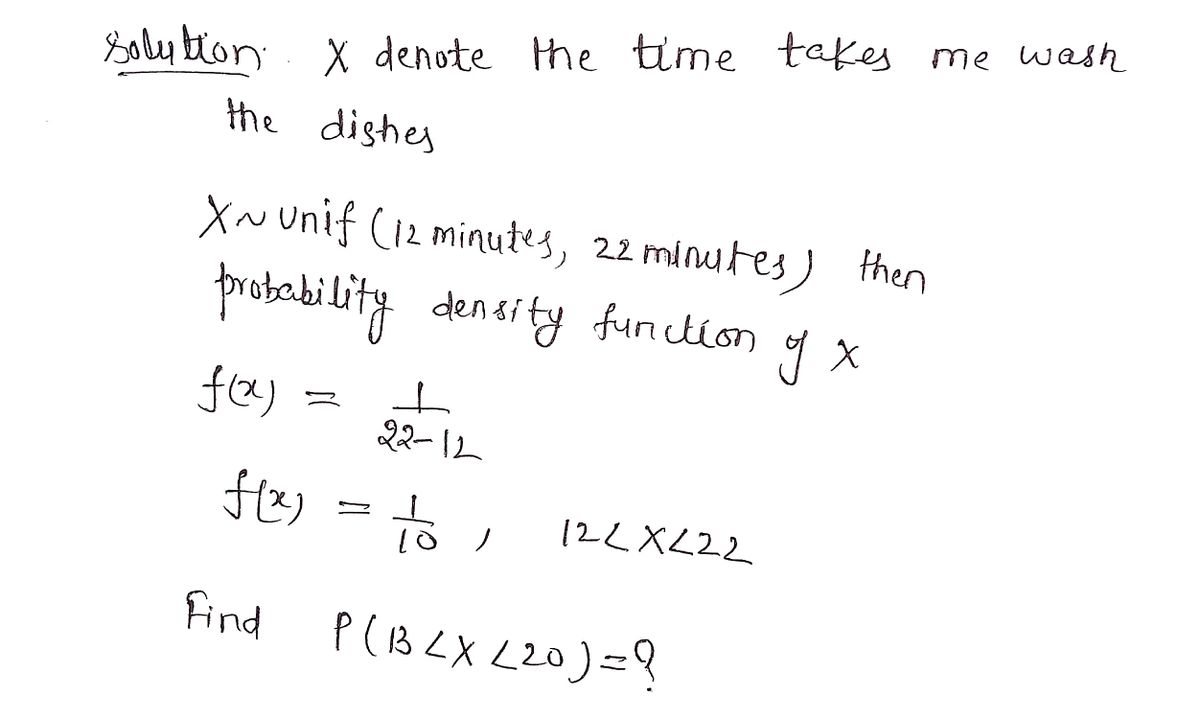 Solution. X denote the time takes me wash
the dishes
X ~ unif (12 minutes, 22 minutes) then
probability density function of x
f(x) = 1/22-12
f(x) = 1/10 , 12 < X < 22
Find P(13 < X < 20) = ?